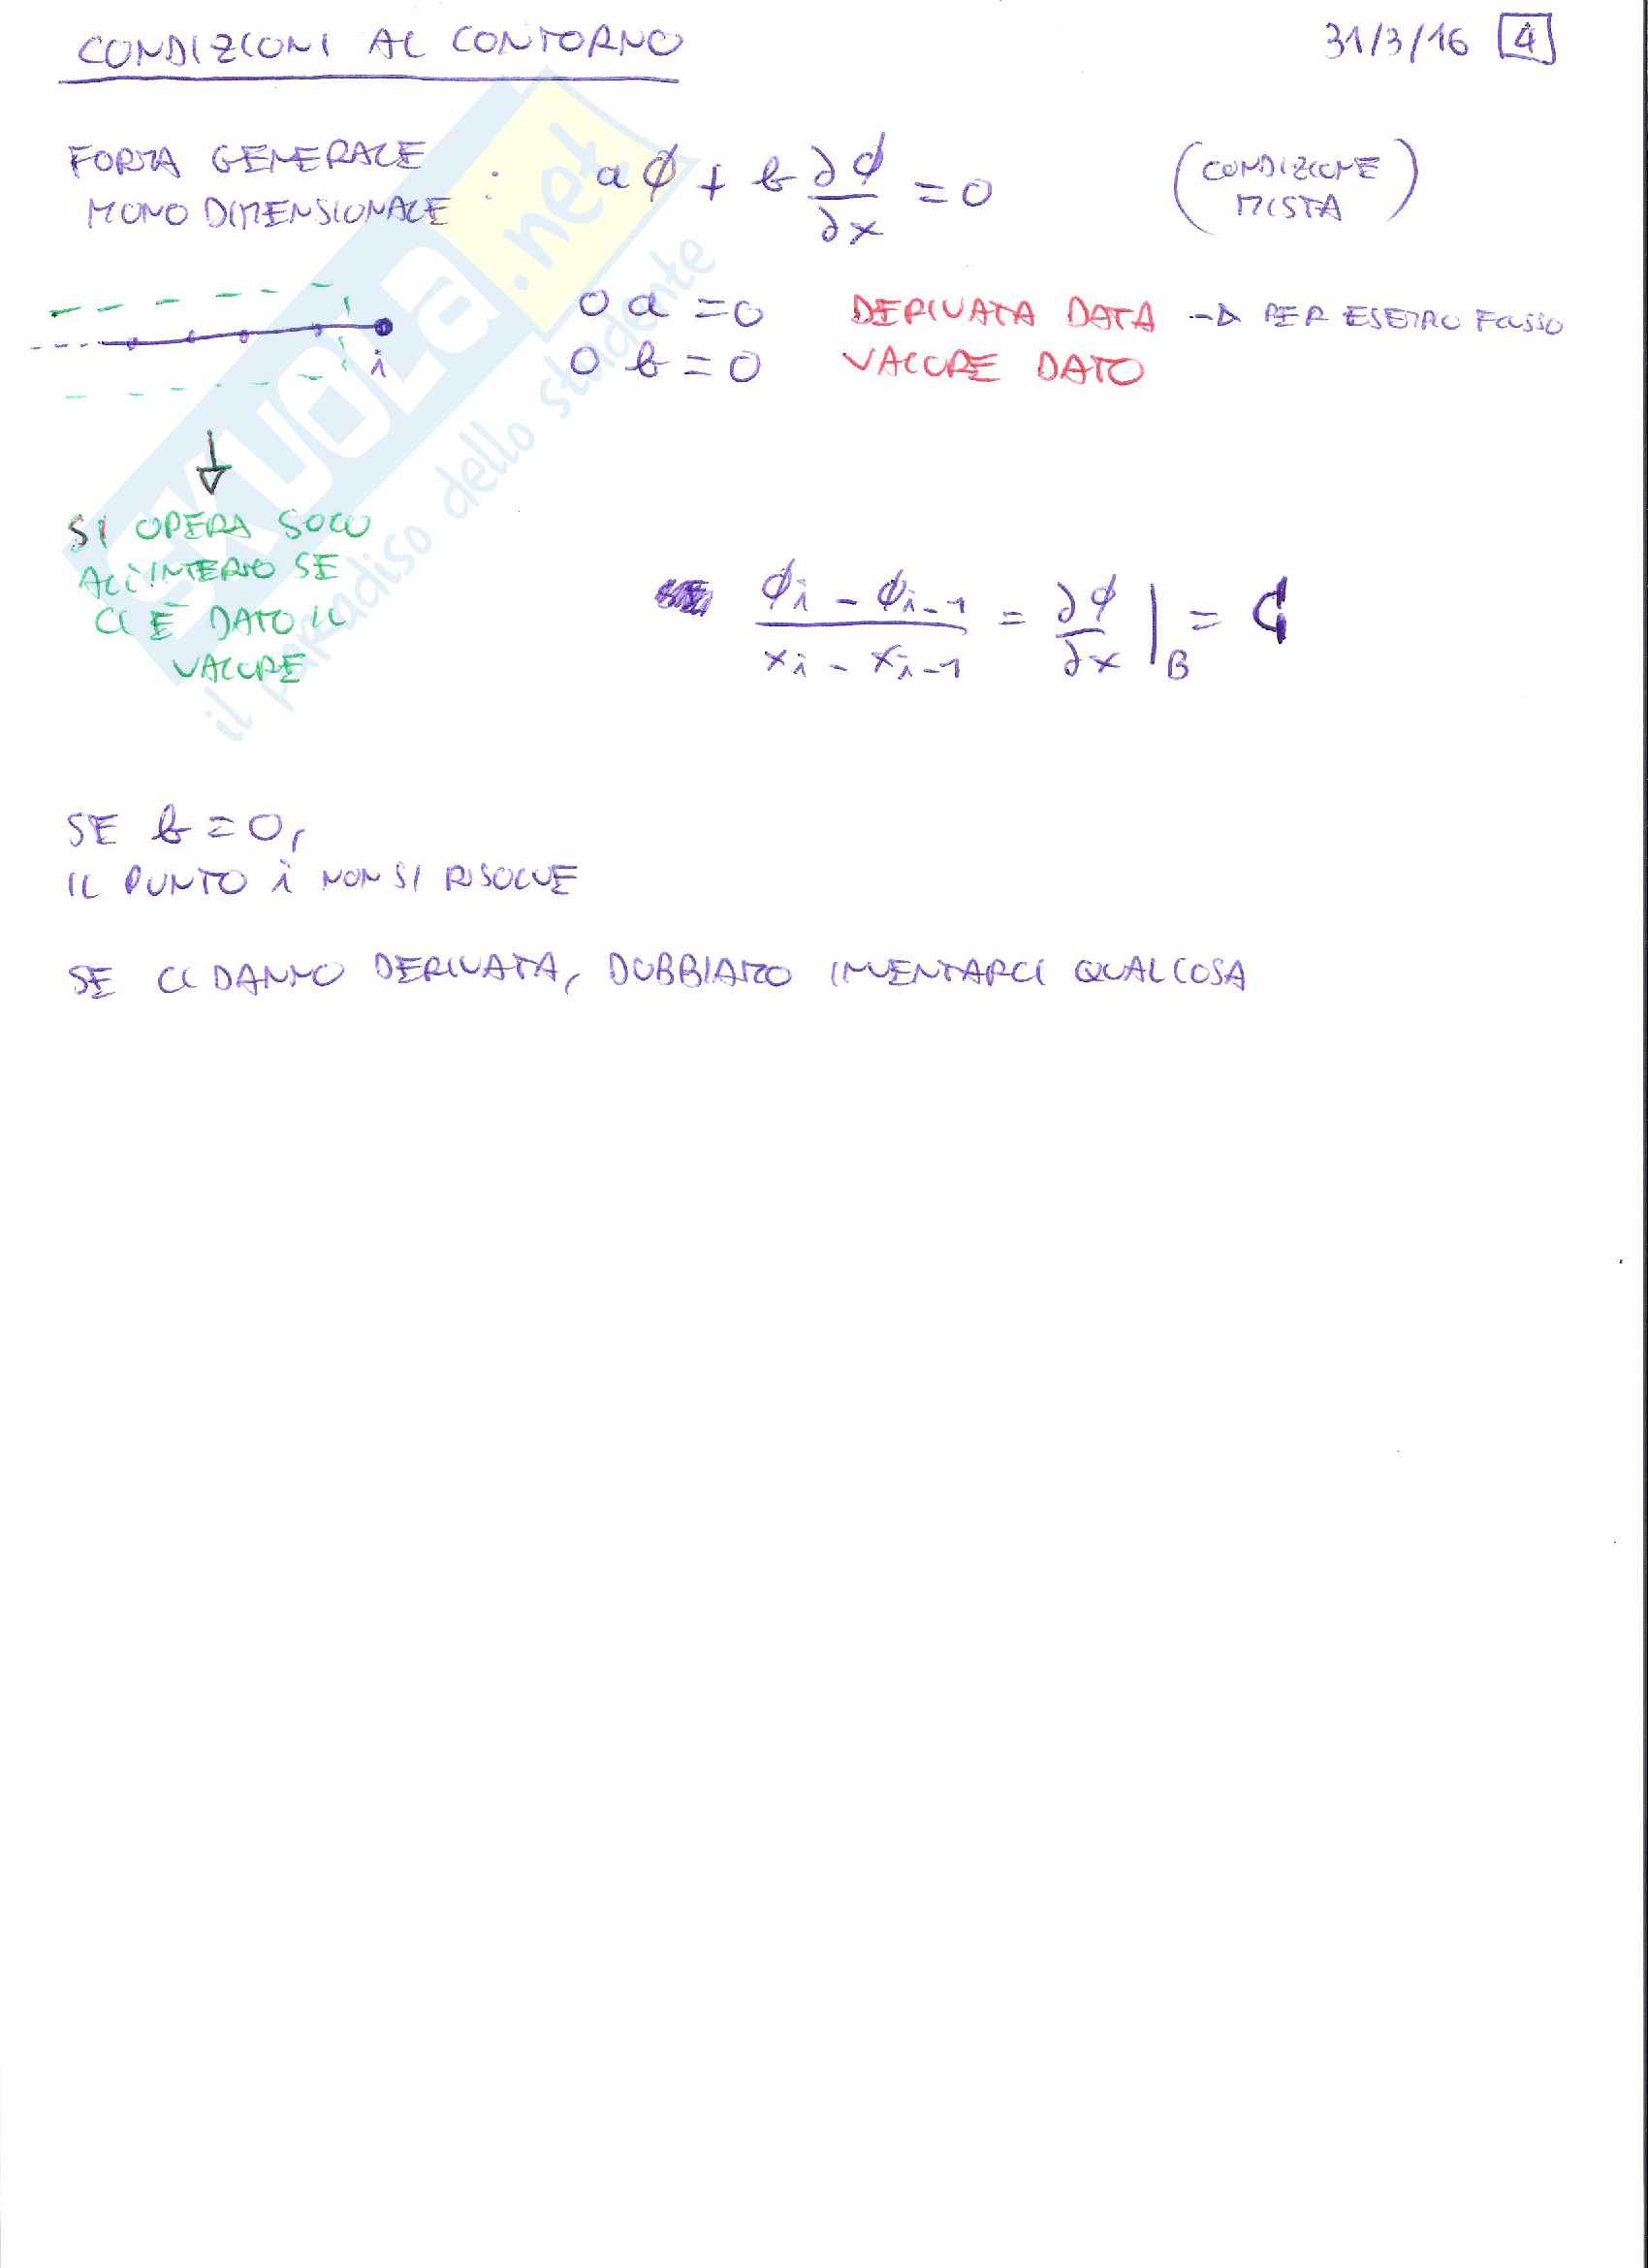 CONDIZIONI AL CONTORNO
31/3/16 4
FORMA GENERALE
MONODIMENSIONALE : aϕ + b ∂ϕ/∂x = 0 (CONDIZIONE MISTA)
O a = 0 DERIVATA DATA → PER ESEMPIO FLUSSO
O b = 0 VALORE DATO
i
SI OPERA SOLO
ALL'INTERNO SE
CI È DATO IL
VALORE
(ϕi - ϕi-1)/(xi - xi-1) = ∂ϕ/∂x |B = C
SE b = 0,
IL PUNTO i NON SI RISOLVE
SE CI DANNO DERIVATA, DOBBIAMO INVENTARCI QUALCOSA
SKUOLA.net
il paradiso dello studente